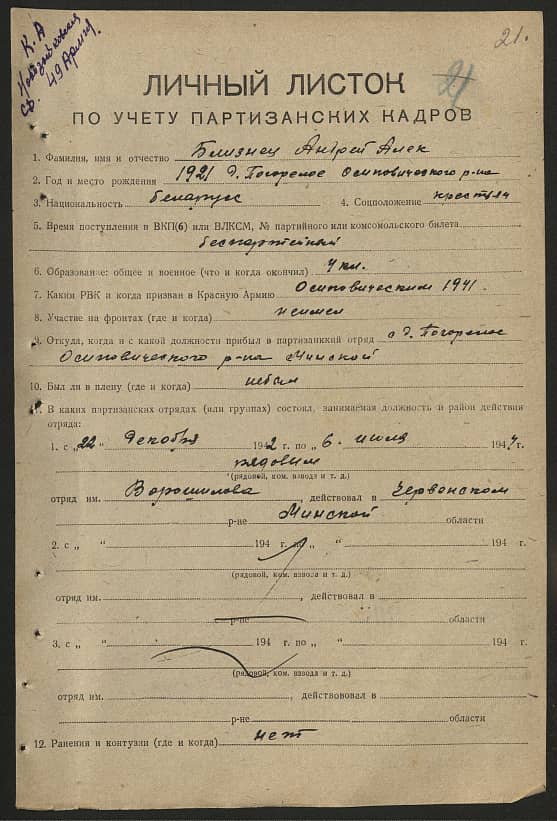 К.А
49 Армия
21.
21
ЛИЧНЫЙ ЛИСТОК
ПО УЧЕТУ ПАРТИЗАНСКИХ КАДРОВ
1. Фамилия, имя и отчество Близнец Андрей Алек
2. Год и место рождения 1921 д. Погорелое Осиповического р-на
3. Национальность беларус 4. Соцположение крестьян
5. Время поступления в ВКП(б) или ВЛКСМ, № партийного или комсомольского билета
беспартейный
6. Образование: общее и военное (что и когда окончил) 4 кл.
7. Каким РВК и когда призван в Красную Армию Осиповическим 1941.
8. Участие на фронтах (где и когда) неимел
9. Откуда, когда и с какой должности прибыл в партизанский отряд с д. Погорелое
Осиповического р-на Минской
10. Был ли в плену (где и когда) небыл
11. В каких партизанских отрядах (или группах) состоял, занимаемая должность и район действия
отряда:
1. с „22" декабря 1942 г. по „6. июля 1944 г.
рядовим
(рядовой, ком. взвода и т. д.)
отряд им. Ворошилова, действовал в Червенском
р-не Минской области
2. с „ " 194 г. по „ " 194 г.
(рядовой, ком. взвода и т. д.)
отряд им. , действовал в
р-не области
3. с „ " 194 г. по „ " 194 г.
(рядовой, ком. взвода и т. д.)
отряд им. , действововал в
р-не области
12. Ранения и контузии (где и когда) нет